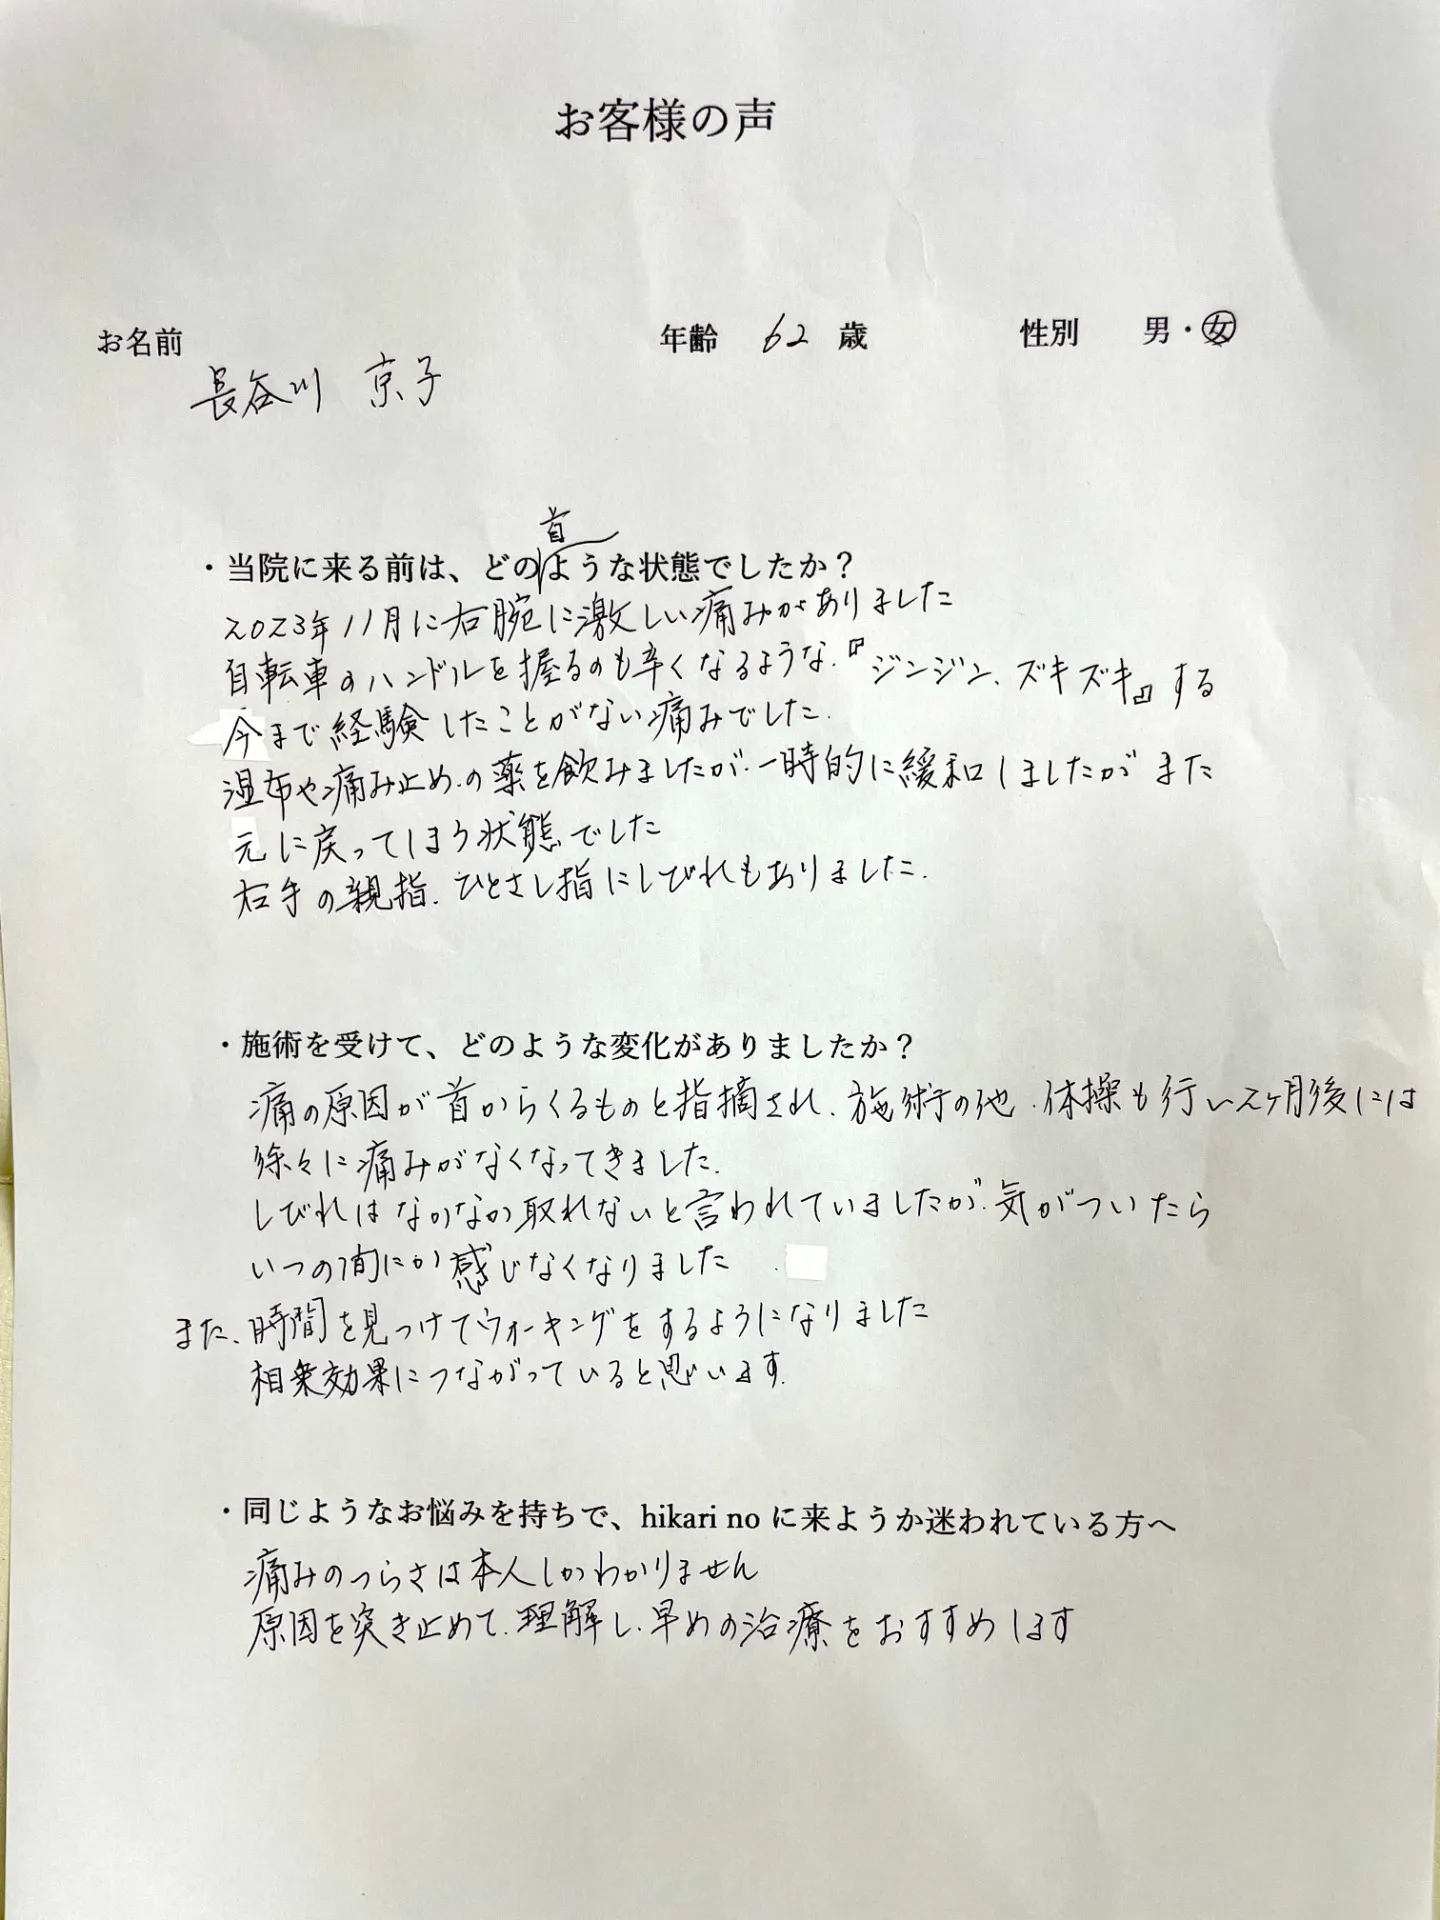 お客様の声
お名前 年齢 62 歳 性別 男・女
長谷川 京子
首
・当院に来る前は、どのような状態でしたか？
2023年11月に右腕に激しい痛みがありました
自転車のハンドルを握るのも辛くなるような.『ジンジン、ズキズキ』する
今まで経験したことがない痛みでした.
湿布や痛み止め.の薬を飲みましたが.一時的に緩和しましたがまた
元に戻ってしまう状態でした
右手の親指.ひとさし指にしびれもありました.
・施術を受けて、どのような変化がありましたか？
痛の原因が首からくるものと指摘され.施術の他.体操も行い2ヶ月後には
徐々に痛みがなくなってきました.
しびれはなかなか取れないと言われていましたが.気がついたら
いつの間にか感じなくなりました
また、時間を見つけてウォーキングをするようになりました
相乗効果につながっていると思います.
・同じようなお悩みを持ちで、hikari no に来ようか迷われている方へ
痛みのつらさは本人しかわかりません
原因を突き止めて.理解し.早めの治療をおすすめします